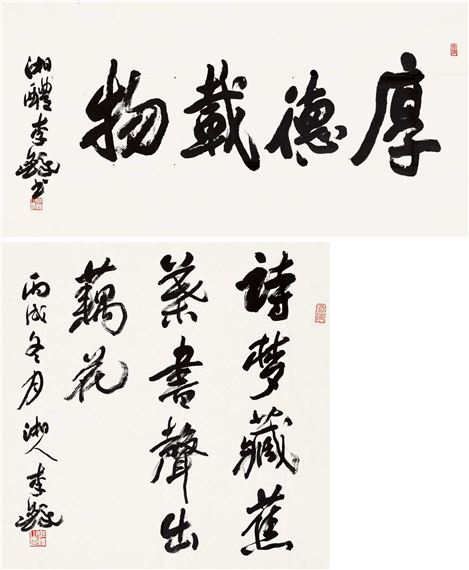 厚德載物
湘醴李鐸书
詩梦藏蕉
葉書聲出
藕花
丙戌冬月湘人李鐸